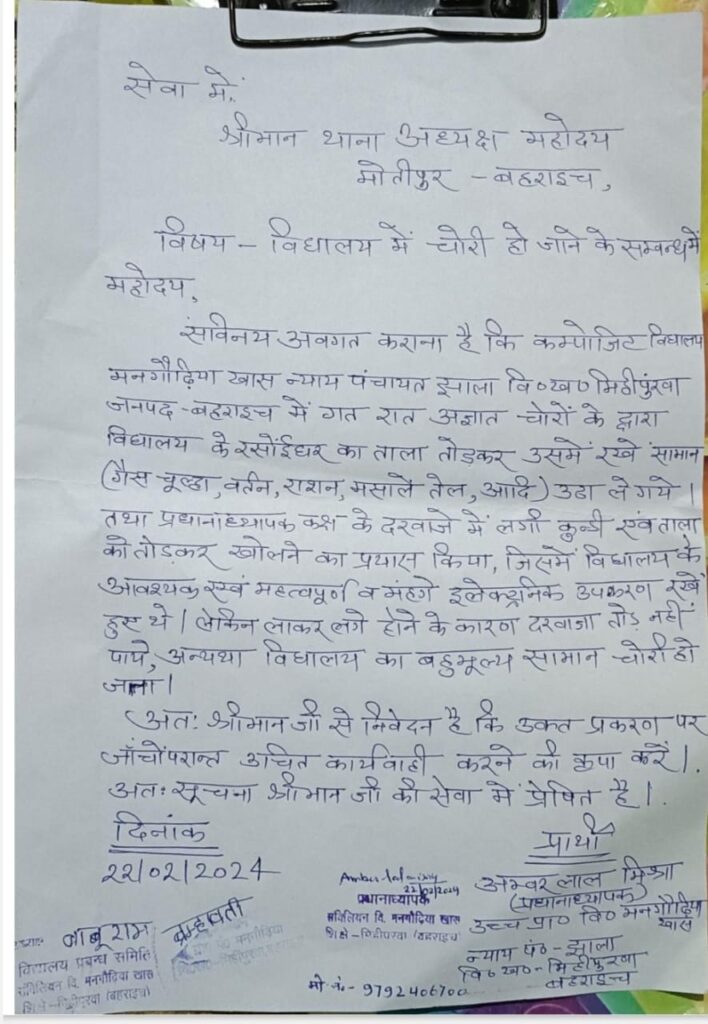 सेवा में,
श्रीमान थाना अध्यक्ष महोदय
मोतीपुर - बहराइच,
विषय - विद्यालय में चोरी हो जाने के सम्बन्ध में
महोदय,
सविनय अवगत कराना है कि कम्पोजिट विद्यालय
मनगौढ़िया खास न्याय पंचायत झाला वि०ख० मिहींपुरवा
जनपद - बहराइच में गत रात अज्ञात चोरों के द्वारा
विद्यालय के रसोंईघर का ताला तोड़कर उसमें रखे सामान
(गैस चूल्हा, वर्तन, राशन, मसाले तेल, आदि) उठा ले गये।
तथा प्रधानाध्यापक कक्ष के दरवाजे में लगी कुन्डी एवं ताला
को तोड़कर खोलने का प्रयास किया, जिसमें विद्यालय के
आवश्यक एवं महत्वपूर्ण व मंहगे इलेक्ट्रनिक उपकरण रखे
हुए थे। लेकिन लाकर लगे होने के कारण दरवाजा तोड़ नहीं
पाये, अन्यथा विद्यालय का बहुमूल्य सामान चोरी हो
जाता।
अतः श्रीमान जी से निवेदन है कि उक्त प्रकरण पर
जाँचोंपरान्त उचित कार्यवाही करने की कृपा करें।
अतः सूचना श्रीमान जी की सेवा में प्रेषित है।
दिनांक
22/02/2024
प्रार्थी
अम्बर लाल मिश्रा
(प्रधानाध्यापक)
उच्च प्रा० वि० मनगौढ़िया
खास
न्याय पं० - झाला
वि० ख० - मिहींपुरवा
बहराइच
मो नं०- 9792406700
22/02/2024
प्रधानाध्यापक
संविलियन वि. मनगौढ़िया खास
शिक्षे-मिहींपुरवा (बहराइच)
बाबूराम
ब्रम्हवती
विद्यालय प्रबन्ध समिति
संविलियन वि. मनगौढ़िया खास
शिक्षे-मिहींपुरवा (बहराइच)